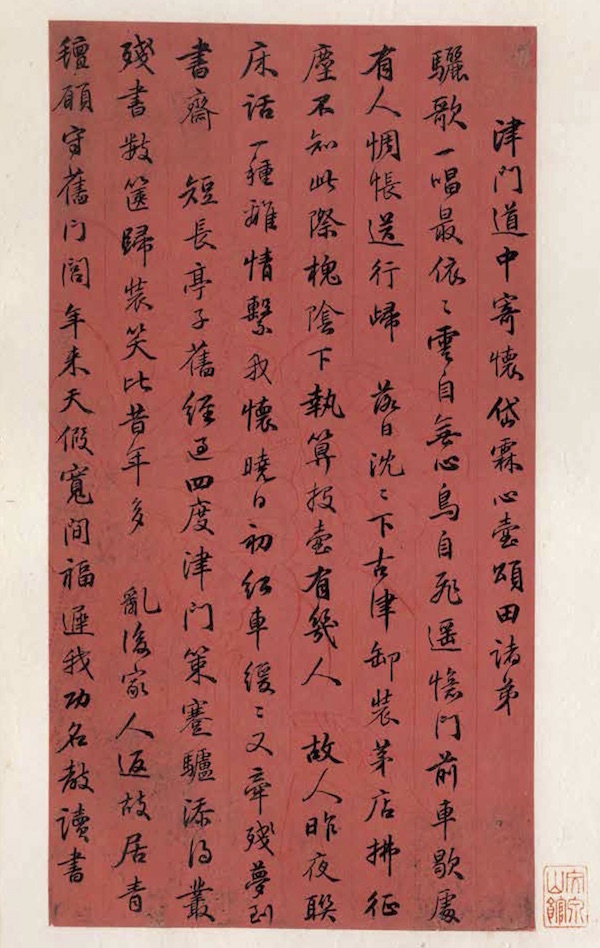 津門道中寄懷岱霖心壺頌田諸弟
驪歌一唱最依〻雲自無心鳥自飛遥憶門前車歇處
有人惆悵送行歸　落日沈〻下古津卸裝茅店拂征
塵不知此際槐陰下執算投壺有幾人　故人昨夜聯
床話一種離情繫我懷曉日初紅車緩〻又牽殘夢到
書齋　短長亭子舊經過四度津門策蹇驢添得叢
殘書數篋歸裝笑比昔年多　亂後家人返故居青
氊願守舊門閭年来天假寬間福遲我功名教讀書
山館